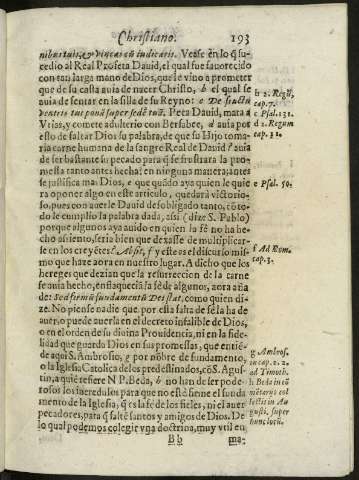 Christiano. 193
nibus tuis, & vincas cũ iudicaris. Vease en lo q̃ su-
cedio al Real Profeta Dauid, el qual fue fauorecido
con tan larga mano de Dios, que le vino a prometer
que de su casta auia de nacer Christo, b el qual se
auia de sentar en la silla de su Reyno: c De fructu
ventris tui ponã super sedẽ tuã. Peca Dauid, mata a
Vrias, y comete adulterio con Bersabee, d auia por
esto de faltar Dios su palabra, de que su Hijo toma-
ria carne humana de la sangre Real de Dauid? auia
de ser bastante su pecado para q̃ se frustrara la pro-
messa tanto antes hecha? en ninguna manera; antes
se justifica mas Dios, e que quãdo aya quien le quie
ra oponer algo en este articulo, quedarà victorio-
so, pues con auerle Dauid desobligado tanto, cõ to-
do le cumplio la palabra dada, assi (dize S. Pablo)
porque algunos aya auido en quien la fè no ha he-
cho assiento, seria bien que dexasse de multiplicar-
se en los creyẽtes? Absit, f y este es el discurso mis-
mo que haze aora en nuestro lugar. A dicho que los
hereges dezian que la resurreccion de la carne
se auia hecho, enflaquecia la fè de algunos, aora aña
de: Sed firmũ fundamentũ Dei stat, como quien di-
ze. No piense nadie que por essa falta de fè la ha de
auer, o puede auerla en el decreto infalible de Dios,
o en el orden de su diuina Prouidencia, ni en la fide-
lidad que guarda Dios en sus promessas, que entiẽ-
de aqui S. Ambrosio, g por nõbre de fundamento,
o la Iglesia Catolica de los predestinados, cõ S. Agus-
tin, a quiẽ refiere N P. Beda, h no han de ser pode-
rosos los incredulos para que no estè firme el funda
mento de la Iglesia, q̃ es la fè de los fieles, ni el auer
pecadores, para q̃ faltẽ santos y amigos de Dios. De
lo qual podemos colegir vna doctrina, muy vtil en
Bb ma-
b 2. Regũ,
cap. 7.
c Psal. 131.
d 2. Regum
cap. 11.
e Psal. 50.
f Ad Rom.
cap. 3.
g Ambros.
in cap. 2. 2.
ad Timoth.
h Beda in cõ
mẽtarijs col
lectis in Au
gusti. super
hunc locũ.